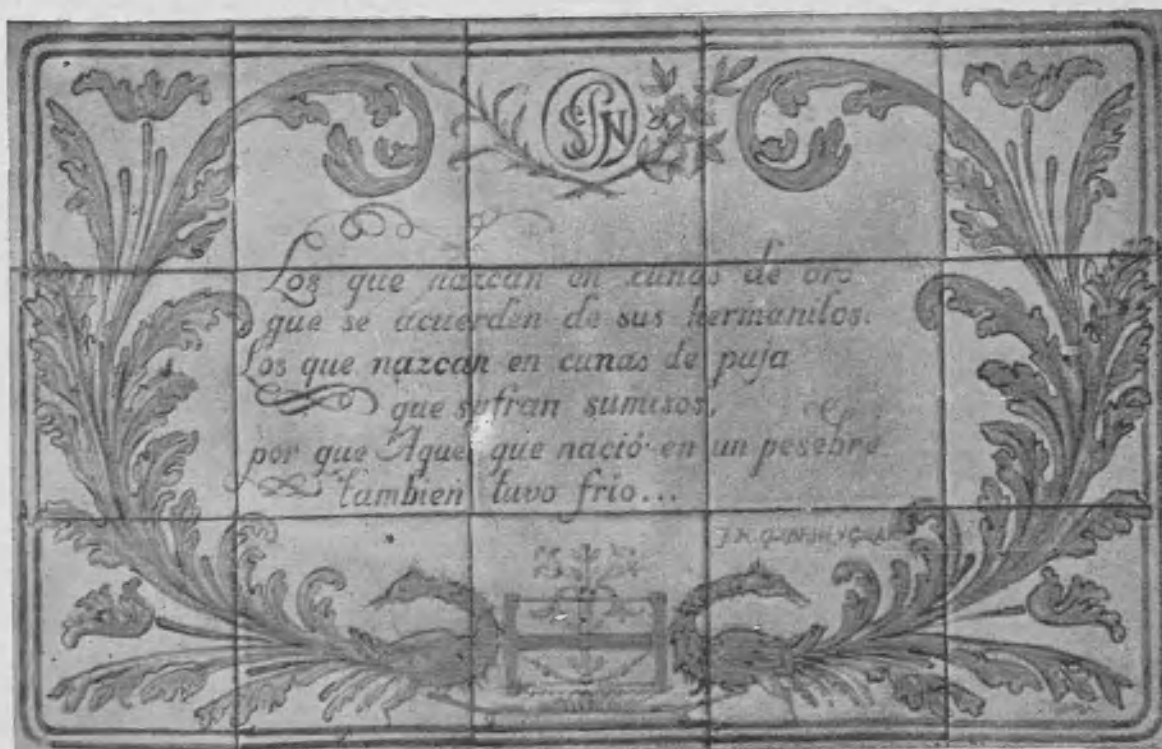 Los que nazcan en cunas de oro
que se acuerden de sus hermanitos.
Los que nazcan en cunas de paja
que sufran sumisos,
por que Aquel que nació en un pesebre
tambien tuvo frio...